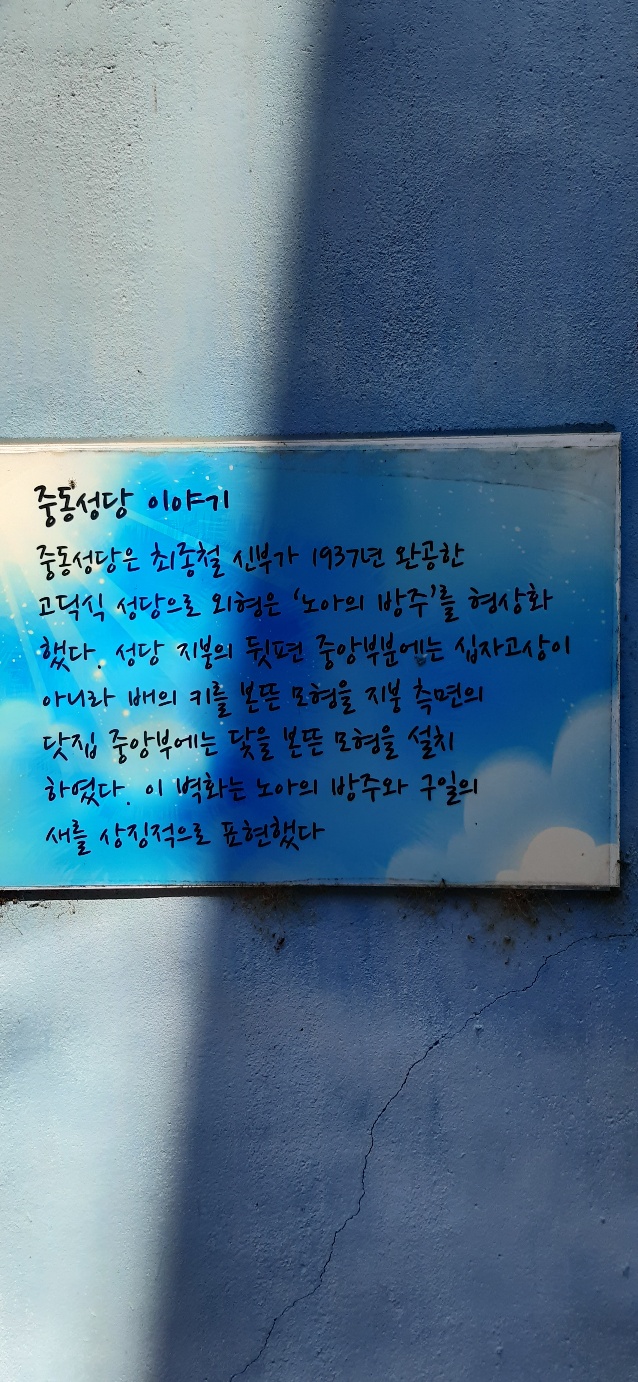 중동성당 이야기
중동성당은 최종철 신부가 1937년 완공한
고딕식 성당으로 외형은 '노아의 방주'를 형상화
했다. 성당 지붕의 뒷편 중앙부분에는 십자고상이
아니라 배의 키를 본뜬 모형을 지붕 측면의
닷집 중앙부에는 닻을 본뜬 모형을 설치
하였다. 이 벽화는 노아의 방주와 구일의
새를 상징적으로 표현했다